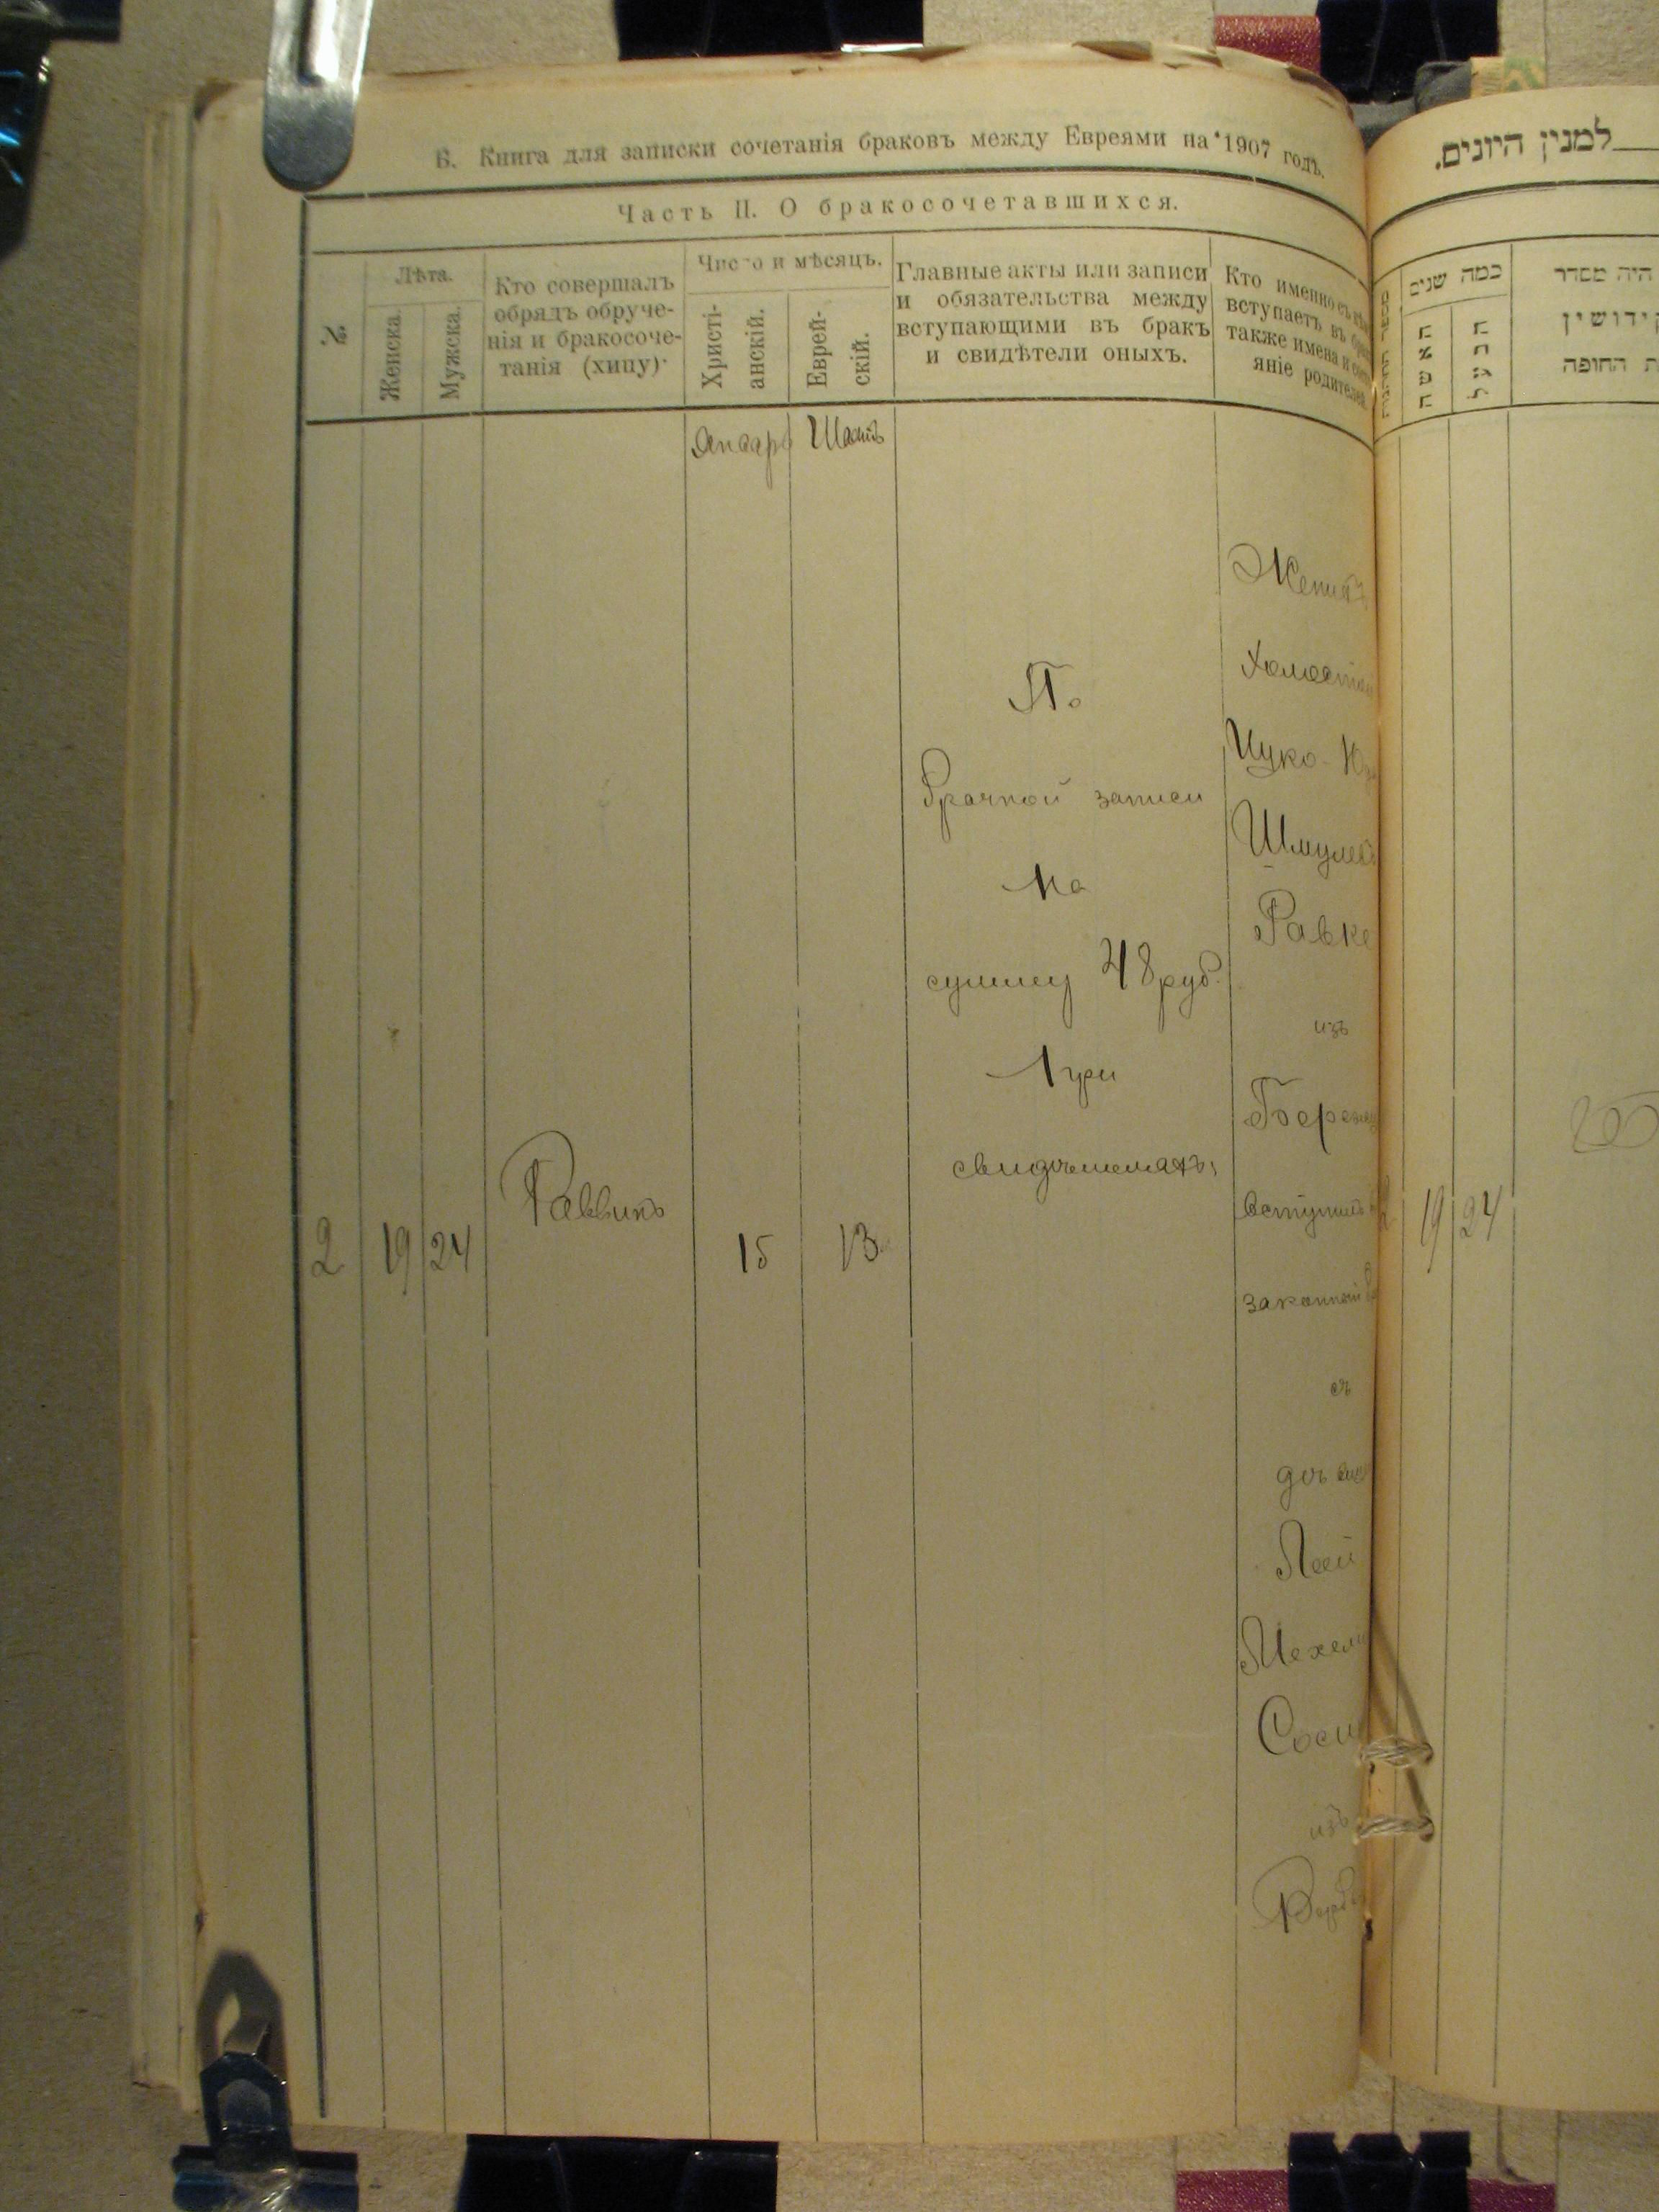 Б. Книга для записки сочетанія браковъ между Евреями на 1907 годъ.
Часть II. О бракосочетавшихся.
№
Лѣта.
Женска.
Мужска.
Кто совершалъ
обрядъ обруче-
нія и бракосоче-
танія (хипу).
Число и мѣсяцъ.
Христі-
анскій.
Еврей-
скій.
Главные акты или записи
и обязательства между
вступающими въ бракъ
и свидѣтели оныхъ.
Кто именно съ
вступаетъ въ
также имена и
яніе родителей.
Январь
2
19
24
Раввинъ
15
13
По
брачной записи
на
сумму 48 руб.
при
свидѣтеляхъ:
Женихъ
Холостой
Шмулев
Равке
изъ
вступилъ
законный
съ
Леей
Мехел
изъ
למנין היונים.
כמה שנים
האשה
הבעל
היה מסדר
קידושין
ת החופה
2
19
24